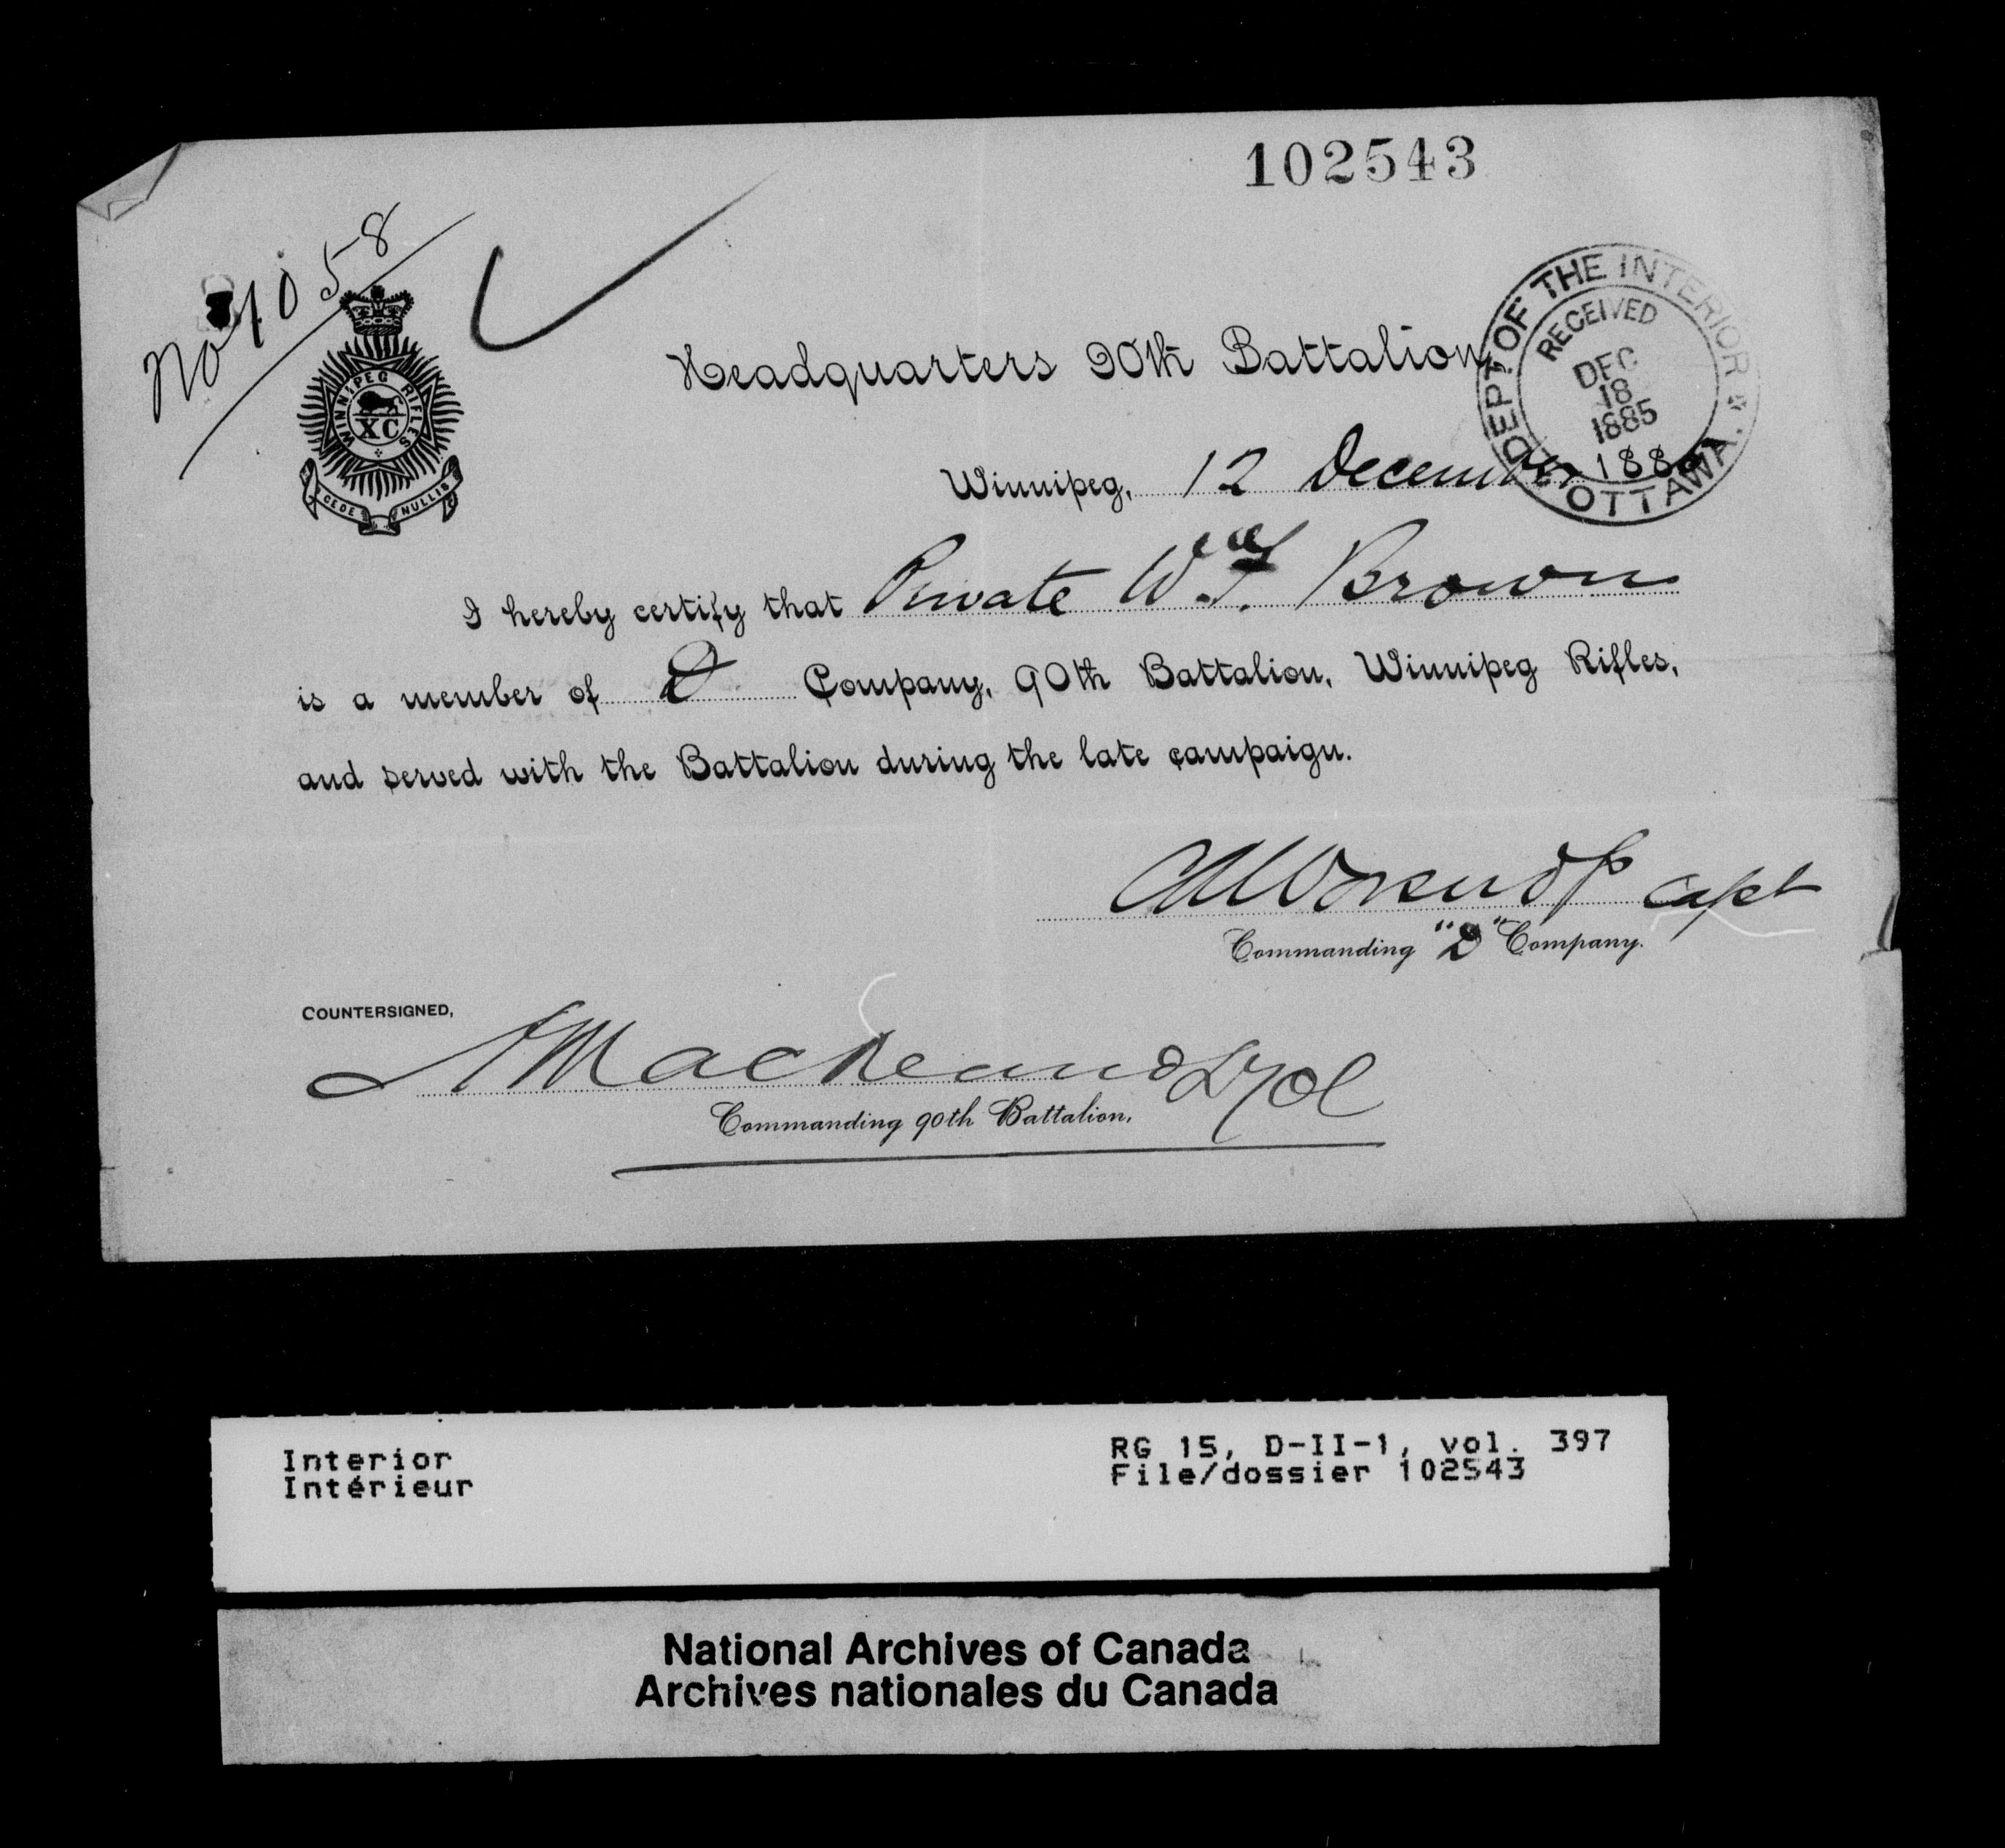 102543
No 1058
WINNIPEG RIFLES
XC
CEDE NULLIS
DEPT. OF THE INTERIOR
RECEIVED
DEC
18
1885
OTTAWA.
Headquarters 90th Battalion,
Winnipeg, 12 December 188
I hereby certify that Private W. F. Brown
is a member of D Company, 90th Battalion, Winnipeg Rifles,
and served with the Battalion during the late campaign.
Capt
Commanding "D" Company.
COUNTERSIGNED,
Mackeand
Commanding 90th Battalion.
Interior
Intérieur
RG 15, D-II-1, vol. 397
File/dossier 102543
National Archives of Canada
Archives nationales du Canada